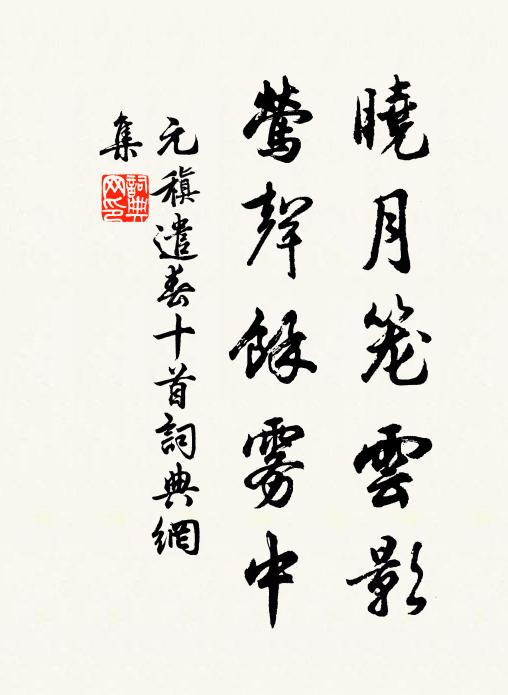 曉月籠雲影
鶯聲餘霧中
元稹遣春十首詞典網
集
詞典
网印